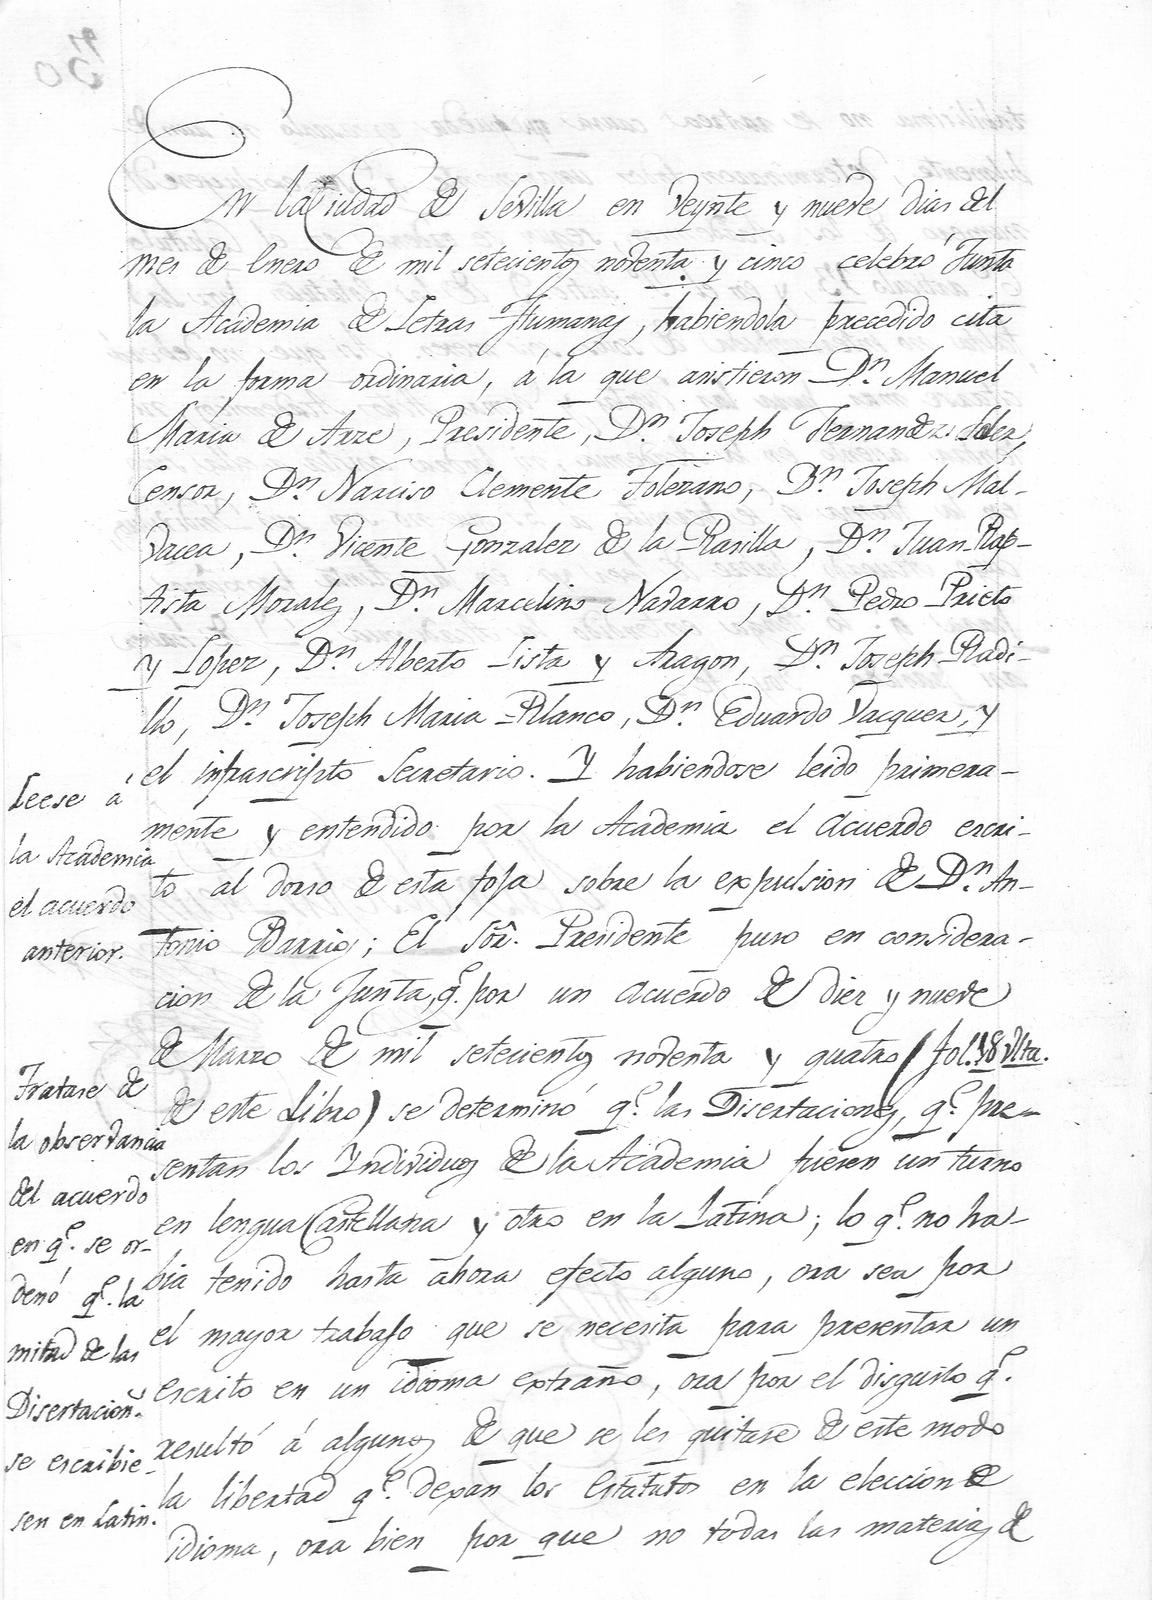 En la Ciudad de Sevilla en Veynte y nueve dias del
mes de Enero de mil setecientos noventa y cinco celebró Junta
la Academia de Letras Humanas, habiendola precedido cita
en la forma ordinaria, á la que asistieron Dn. Manuel
Maria de Arze, Presidente, Dn. Joseph Fernandez
Censor, Dn. Narciso Clemente Tolezano, Dn. Joseph Mal-
vacea, Dn. Vicente Gonzalez de la Rasilla, Dn. Juan Bap-
tista Morales, Dn. Marcelino Navarro, Dn. Pedro Prieto
y Lopez, Dn. Alberto Lista y Aragon, Dn. Joseph Radi-
llo, Dn. Joseph Maria Blanco, Dn. Eduardo Vacquer, y
el infrascripto Secretario. Y habiendose leido primera-
mente y entendido por la Academia el Acuerdo escri-
to al dorso de esta foja sobre la expulsion de Dn. An-
tonio Barrios; El Sōr. Presidente puso en considera-
cion de la Junta, q.e por un Acuerdo de diez y nueve
de Marzo de mil setecientos noventa y quatro (fol. 18 vlta.
de este Libro) se determinó q.e las Disertaciones, q.e pre-
sentan los Individuos de la Academia fuesen un turno
en lengua Castellana y otro en la Latina; lo q.e no ha-
bia tenido hasta ahora efecto alguno, ora sea por
el mayor trabajo que se necesita para presentar un
Escrito en un idioma extraño, ora por el disgusto q.e
resultó á algunos de que se les quitase de este modo
la libertad q.e dexan los Estatutos en la eleccion de
idioma, ora bien por que no todas las materias de
Leese á
la Academia
el acuerdo
anterior.
Tratase de
la observancia
del acuerdo
en q.e se or-
denó q.e la
mitad de las
Disertacion.s
se escribie-
sen en Latin.